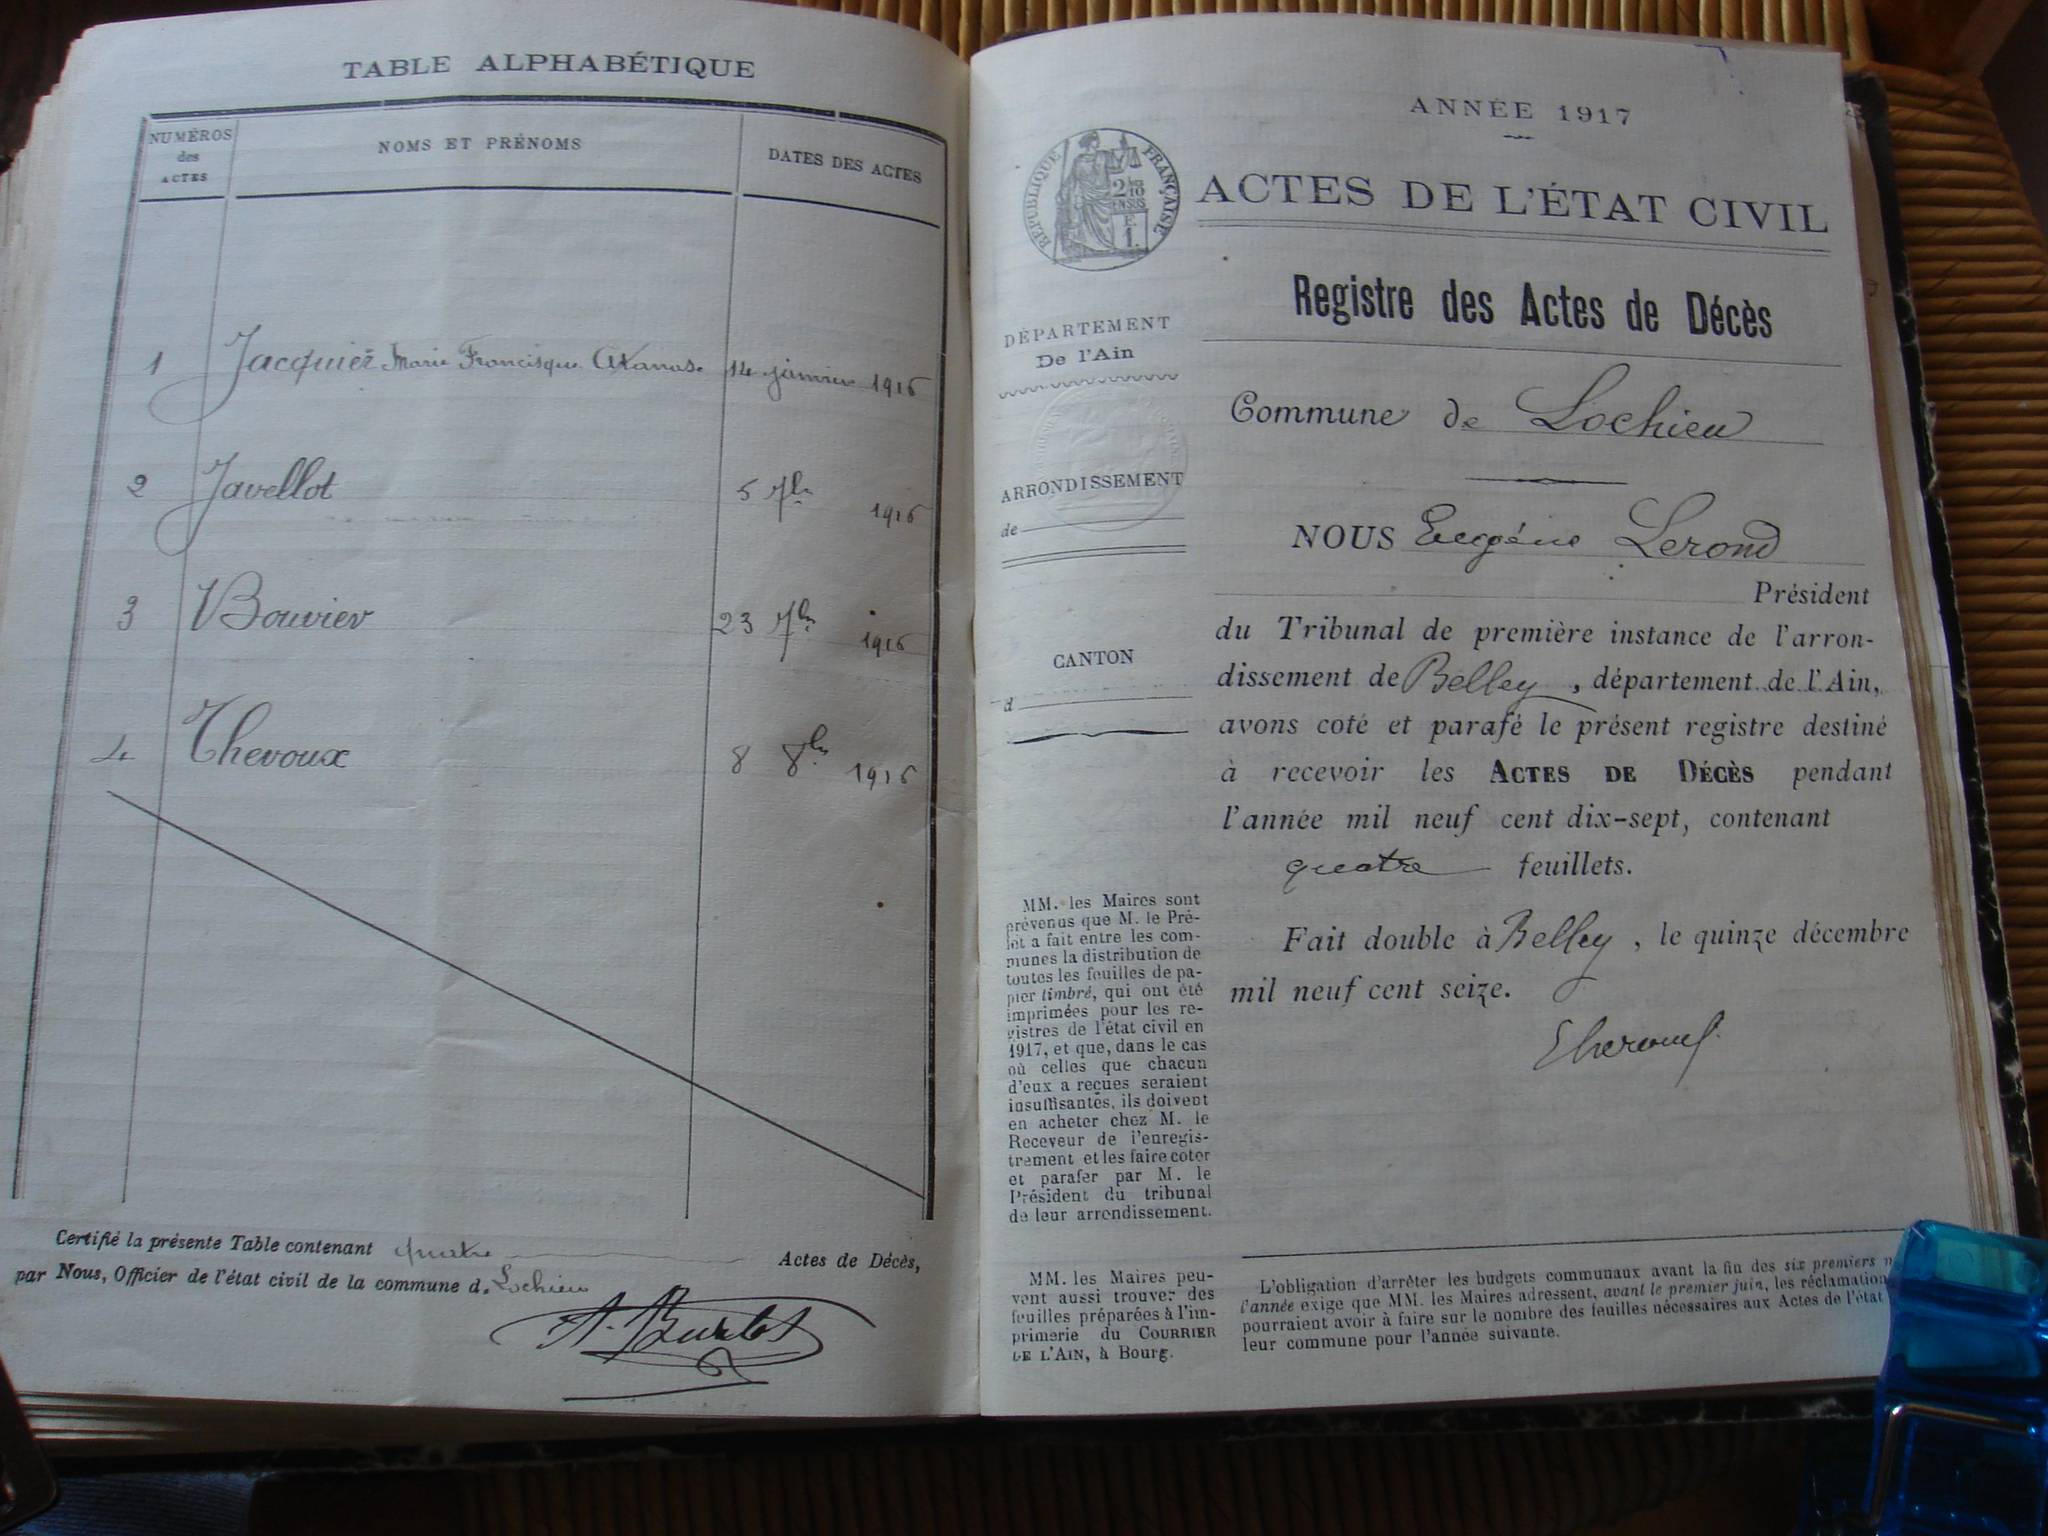 TABLE ALPHABÉTIQUE
NUMÉROS
des
ACTES
NOMS ET PRÉNOMS
DATES DES ACTES
1 Jacquier Marie Francisque 14 janvier 1916
2 Javellot 5 7bre 1916
3 Bouvier 23 7bre 1916
4 Thevoux 8 8bre 1916
Certifié la présente Table contenant quatre Actes de Décès,
par Nous, Officier de l'état civil de la commune de Lochieu
ANNÉE 1917
RÉPUBLIQUE FRANÇAISE
ACTES DE L'ÉTAT CIVIL
Registre des Actes de Décès
DÉPARTEMENT
De l'Ain
Commune de Lochieu
ARRONDISSEMENT
de
NOUS Eugène Lerond
Président
du Tribunal de première instance de l'arron-
dissement de Belley, département de l'Ain,
avons coté et parafé le présent registre destiné
à recevoir les ACTES DE DÉCÈS pendant
l'année mil neuf cent dix-sept, contenant
quatre feuillets.
Fait double à Belley, le quinze décembre
mil neuf cent seize.
CANTON
d
MM. les Maires sont
prévenus que M. le Pré-
fet a fait entre les com-
munes la distribution de
toutes les feuilles de pa-
pier timbré, qui ont été
imprimées pour les re-
gistres de l'état civil en
1917, et que, dans le cas
où celles que chacun
d'eux a reçues seraient
insuffisantes, ils doivent
en acheter chez M. le
Receveur de l'enregis-
trement et les faire coter
et parafer par M. le
Président du tribunal
de leur arrondissement.
MM. les Maires peu-
vent aussi trouver des
feuilles préparées à l'im-
primerie du COURRIER
DE L'AIN, à Bourg.
L'obligation d'arrêter les budgets communaux avant la fin des six premiers
l'année exige que MM. les Maires adressent, avant le premier juin, les réclamation
pourraient avoir à faire sur le nombre des feuilles nécessaires aux Actes de l'état
leur commune pour l'année suivante.